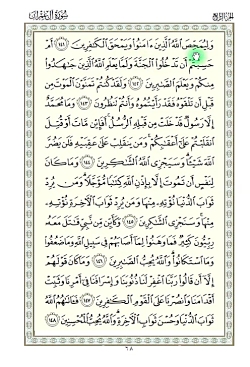 الجزء الرابع سورة آل عمران
وَلِيُمَحِّصَ اللَّهُ الَّذِينَ ءَامَنُوا وَيَمْحَقَ الْكَٰفِرِينَ ١٤١ أَمْ
حَسِبْتُمْ أَن تَدْخُلُوا الْجَنَّةَ وَلَمَّا يَعْلَمِ اللَّهُ الَّذِينَ جَٰهَدُوا
مِنكُمْ وَيَعْلَمَ الصَّٰبِرِينَ ١٤٢ وَلَقَدْ كُنتُمْ تَمَنَّوْنَ الْمَوْتَ مِن
قَبْلِ أَن تَلْقَوْهُ فَقَدْ رَأَيْتُمُوهُ وَأَنتُمْ تَنظُرُونَ ١٤٣ وَمَا مُحَمَّدٌ
إِلَّا رَسُولٌ قَدْ خَلَتْ مِن قَبْلِهِ الرُّسُلُ أَفَإِيْن مَّاتَ أَوْ قُتِلَ
انقَلَبْتُمْ عَلَىٰ أَعْقَٰبِكُمْ وَمَن يَنقَلِبْ عَلَىٰ عَقِبَيْهِ فَلَن يَضُرَّ
اللَّهَ شَيْئًا وَسَيَجْزِي اللَّهُ الشَّٰكِرِينَ ١٤٤ وَمَا كَانَ
لِنَفْسٍ أَن تَمُوتَ إِلَّا بِإِذْنِ اللَّهِ كِتَٰبًا مُّؤَجَّلًا وَمَن يُرِدْ
ثَوَابَ الدُّنْيَا نُؤْتِهِ مِنْهَا وَمَن يُرِدْ ثَوَابَ الْءَاخِرَةِ نُؤْتِهِ
مِنْهَا وَسَنَجْزِي الشَّٰكِرِينَ ١٤٥ وَكَأَيِّن مِّن نَّبِيٍّ قَٰتَلَ مَعَهُ
رِبِّيُّونَ كَثِيرٌ فَمَا وَهَنُوا لِمَا أَصَابَهُمْ فِي سَبِيلِ اللَّهِ وَمَا ضَعُفُوا
وَمَا اسْتَكَانُوا وَاللَّهُ يُحِبُّ الصَّٰبِرِينَ ١٤٦ وَمَا كَانَ قَوْلَهُمْ
إِلَّا أَن قَالُوا رَبَّنَا اغْفِرْ لَنَا ذُنُوبَنَا وَإِسْرَافَنَا فِي أَمْرِنَا وَثَبِّتْ
أَقْدَامَنَا وَانصُرْنَا عَلَى الْقَوْمِ الْكَٰفِرِينَ ١٤٧ فَـَٔاتَىٰهُمُ اللَّهُ
ثَوَابَ الدُّنْيَا وَحُسْنَ ثَوَابِ الْءَاخِرَةِ وَاللَّهُ يُحِبُّ الْمُحْسِنِينَ ١٤٨
٦٨